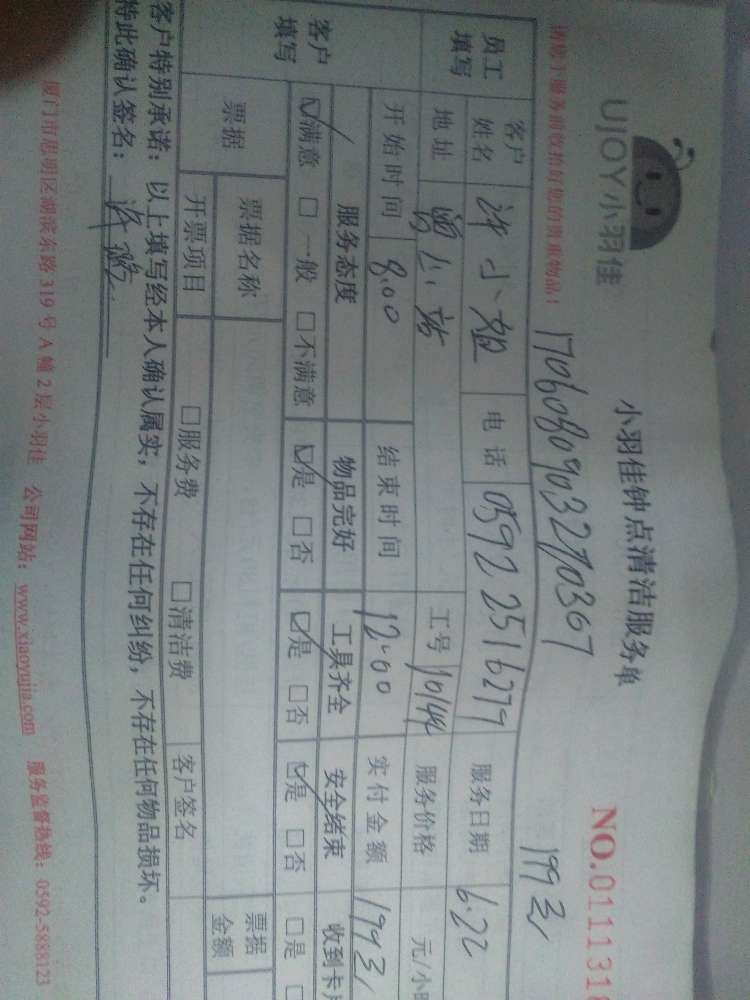 UJOY小羽佳
小羽佳钟点清洁服务单
NO.011131
请您于服务前收拾好您的贵重物品！
1993/
员工填写 客户姓名 许小姐 电话 0592 2516279 服务日期 6.22
地址 工号 10144 服务价格 元/小时
开始时间 8.00 结束时间 12.00 实付金额 199
客户填写 服务态度 物品完好 工具齐全 安全结束 收到卡片
☑满意 □一般 □不满意 ☑是 □否 ☑是 □否 ☑是 □否 □是
票据 票据名称 票据金额
开票项目 □服务费 □清洁费 客户签名
客户特别承诺：以上填写经本人确认属实，不存在任何纠纷，不存在任何物品损坏。
特此确认签名：
厦门市思明区湖滨东路319号A幢2层小羽佳 公司网站：www.xiaoyujia.com 服务监督热线：0592-5888123